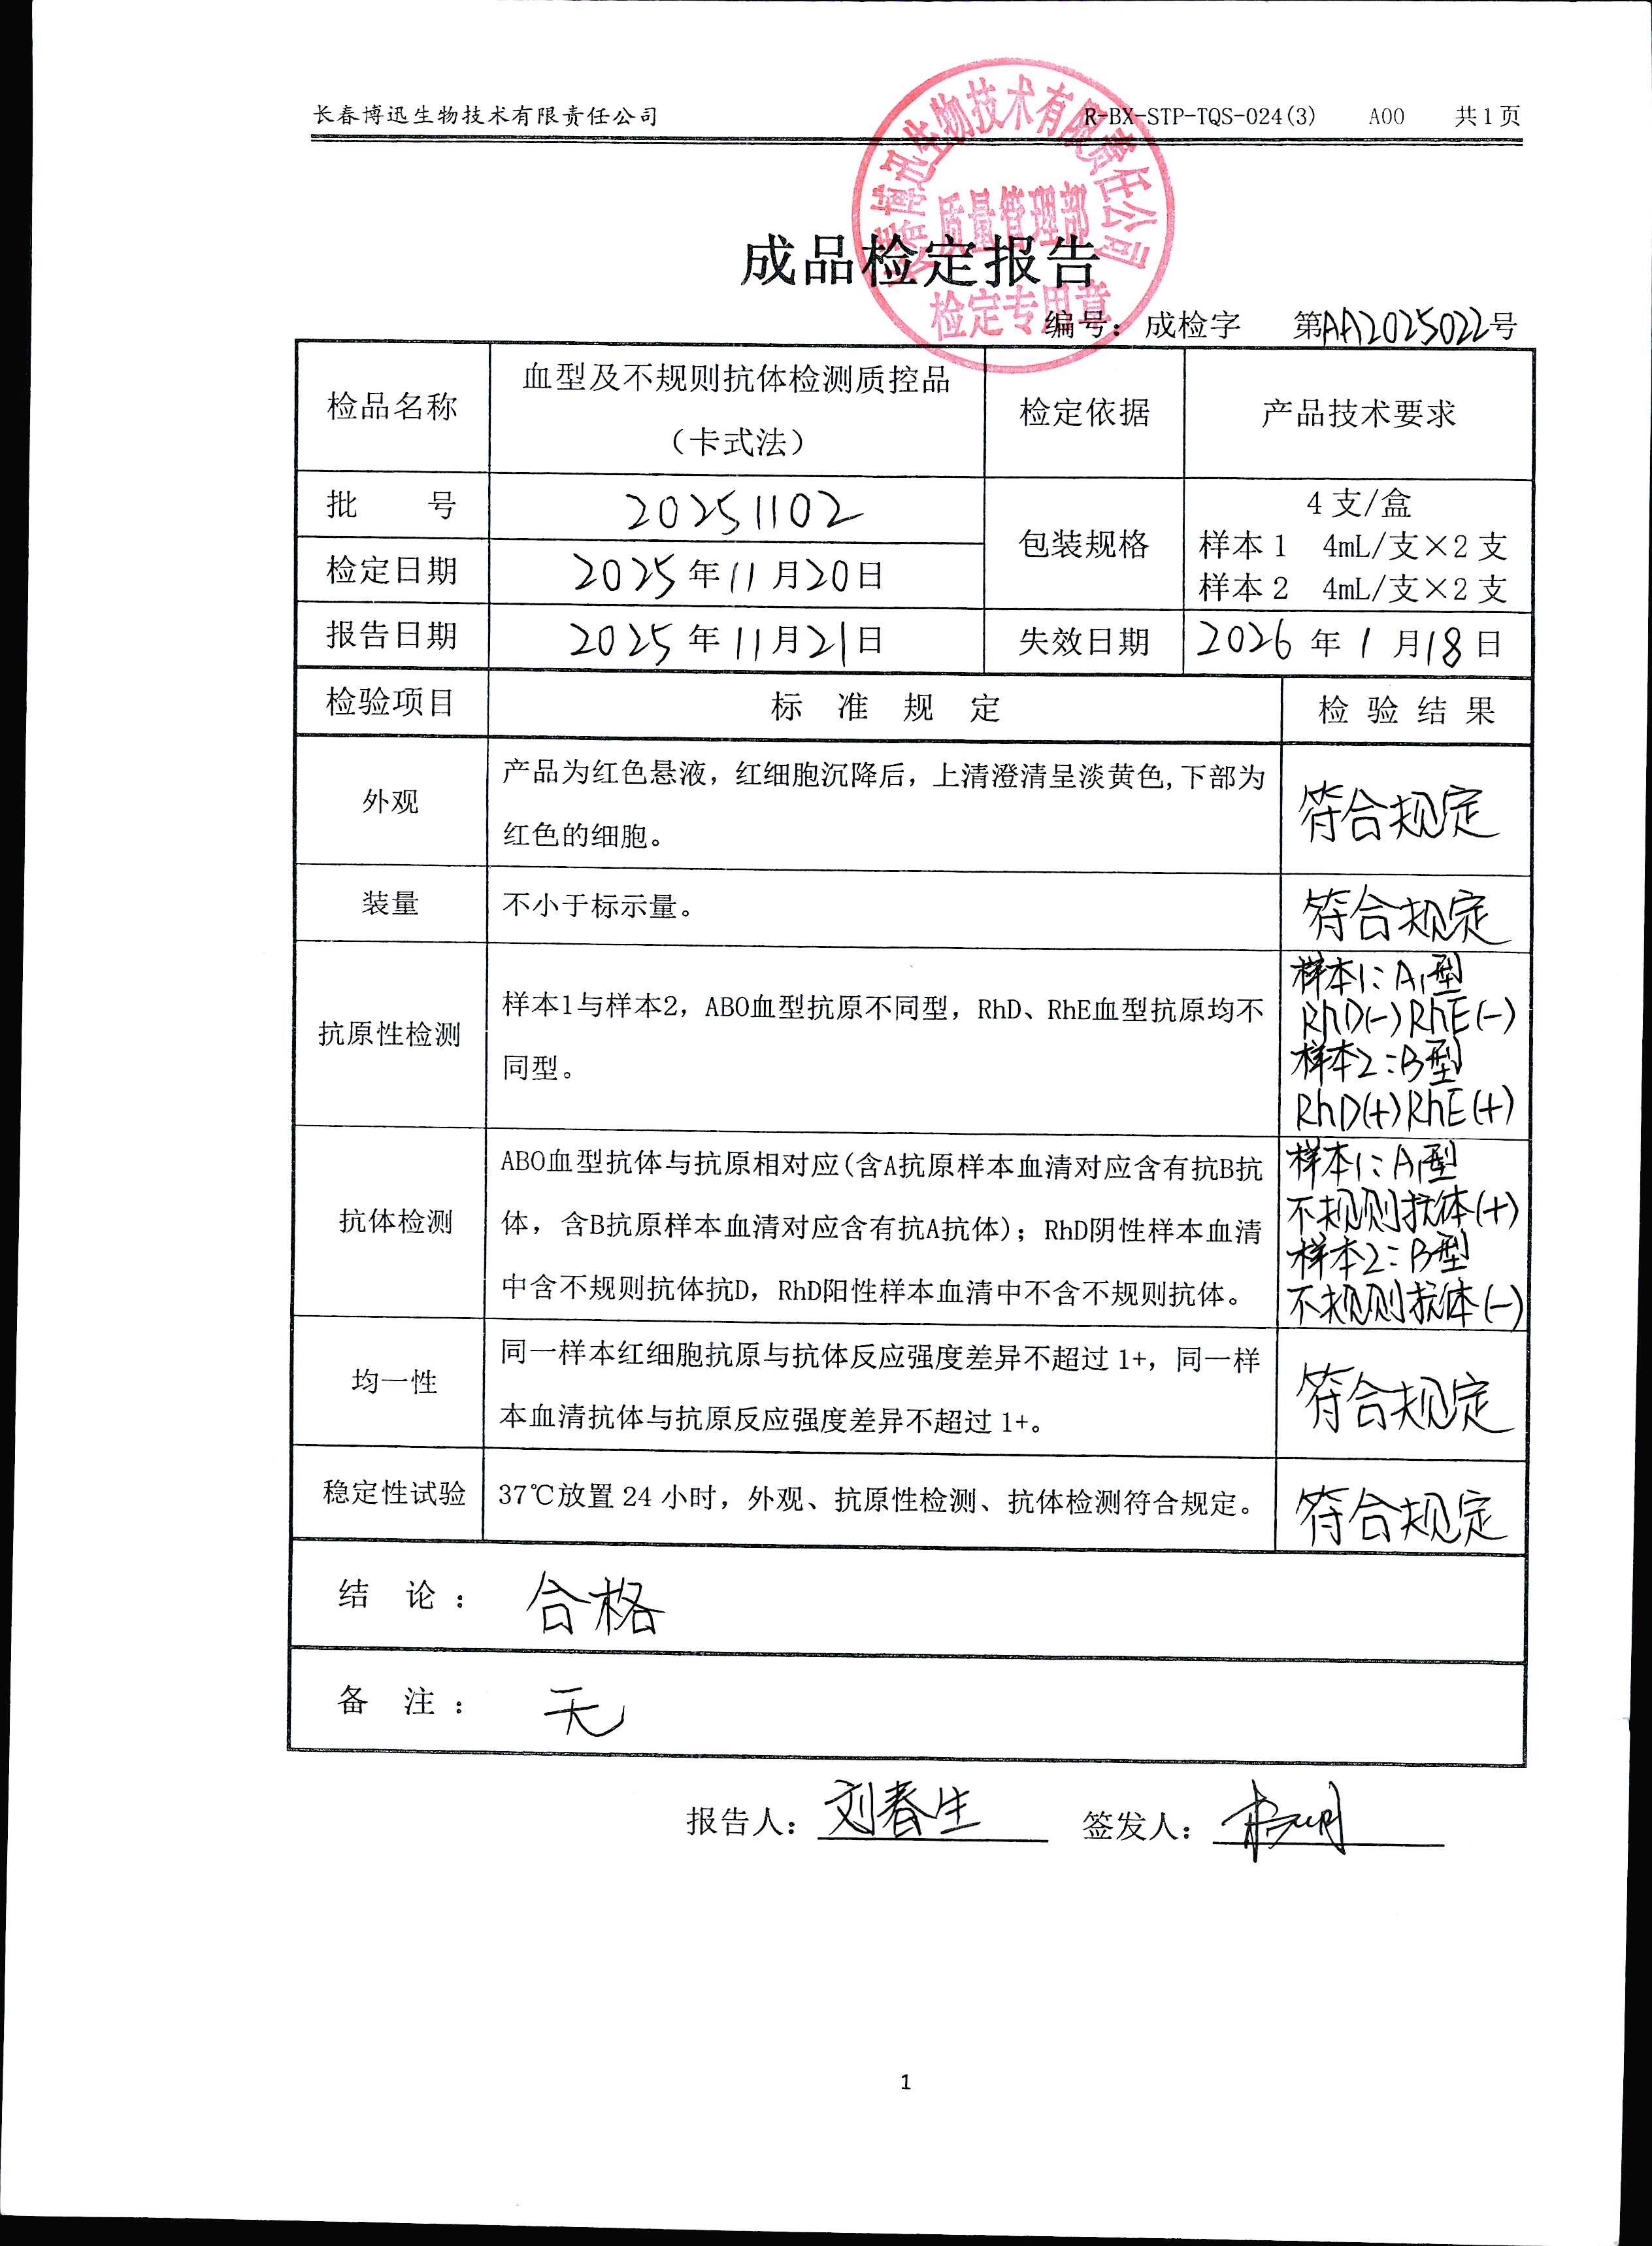 长春博迅生物技术有限责任公司 R-BX-STP-TQS-024(3) A00 共1页
长春博迅生物技术有限责任公司
质量管理部
检定专用章
成品检定报告
编号：成检字 第AA2025022号
检品名称
血型及不规则抗体检测质控品
（卡式法）
检定依据
产品技术要求
批 号
20251102
包装规格
4支/盒
样本1 4mL/支×2支
样本2 4mL/支×2支
检定日期
2025年11月20日
报告日期
2025年11月21日
失效日期
2026年1月18日
检验项目
标 准 规 定
检 验 结 果
外观
产品为红色悬液，红细胞沉降后，上清澄清呈淡黄色,下部为
红色的细胞。
符合规定
装量
不小于标示量。
符合规定
抗原性检测
样本1与样本2，ABO血型抗原不同型，RhD、RhE血型抗原均不
同型。
样本1：A1型
RhD(-)RhE(-)
样本2：B型
RhD(+)RhE(+)
抗体检测
ABO血型抗体与抗原相对应(含A抗原样本血清对应含有抗B抗
体，含B抗原样本血清对应含有抗A抗体)；RhD阴性样本血清
中含不规则抗体抗D，RhD阳性样本血清中不含不规则抗体。
样本1：A1型
不规则抗体(+)
样本2：B型
不规则抗体(-)
均一性
同一样本红细胞抗原与抗体反应强度差异不超过1+，同一样
本血清抗体与抗原反应强度差异不超过1+。
符合规定
稳定性试验
37℃放置24小时，外观、抗原性检测、抗体检测符合规定。
符合规定
结 论：
合格
备 注：
无
报告人：刘春生 签发人：
1